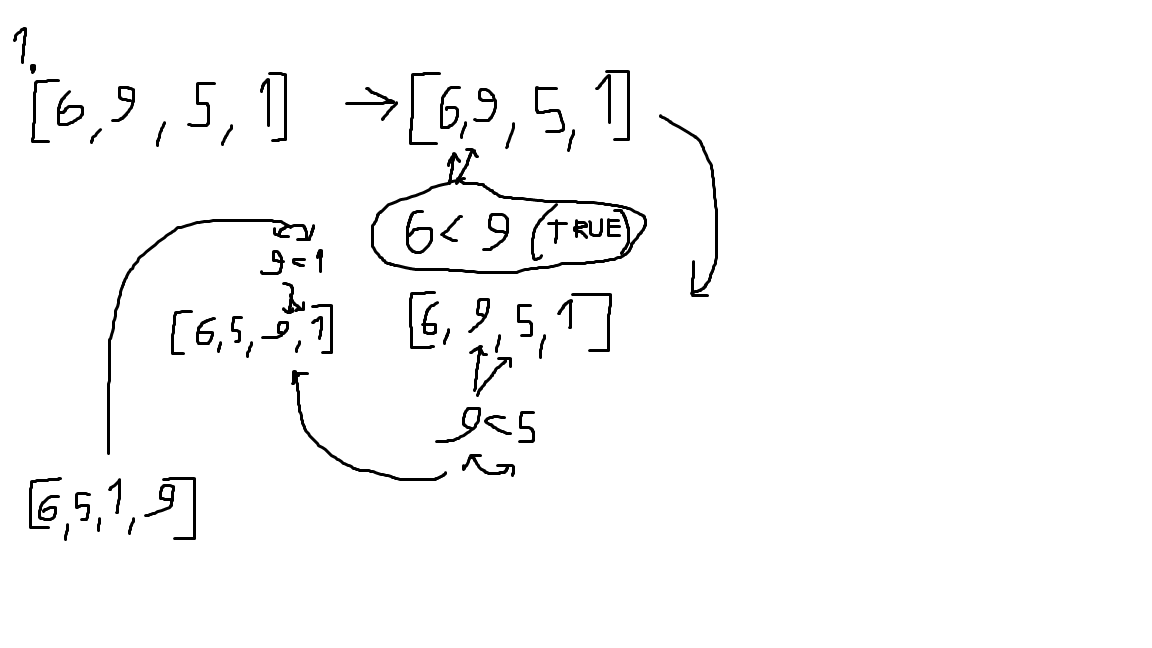 1.
[6, 9, 5, 1] → [6, 9, 5, 1]
6 < 9 (TRUE)
[6, 9, 5, 1]
9 < 5
[6, 5, 9, 1]
9 < 1
[6, 5, 1, 9]